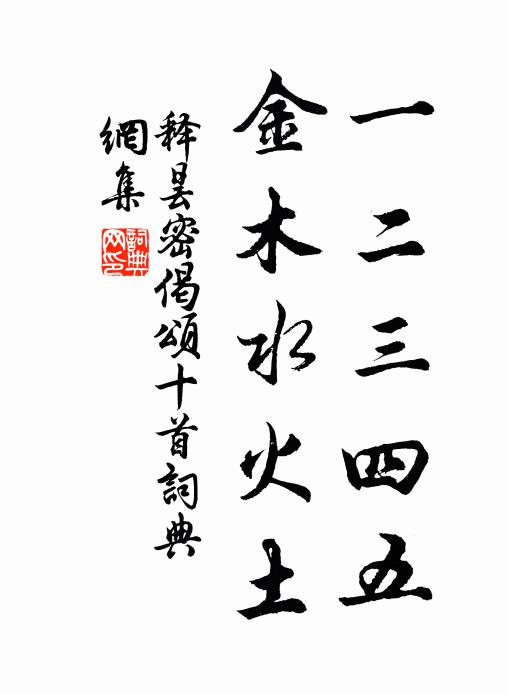 一二三四五
金木水火土
释昙密偈頌十首詞典
網集
詞典
网印